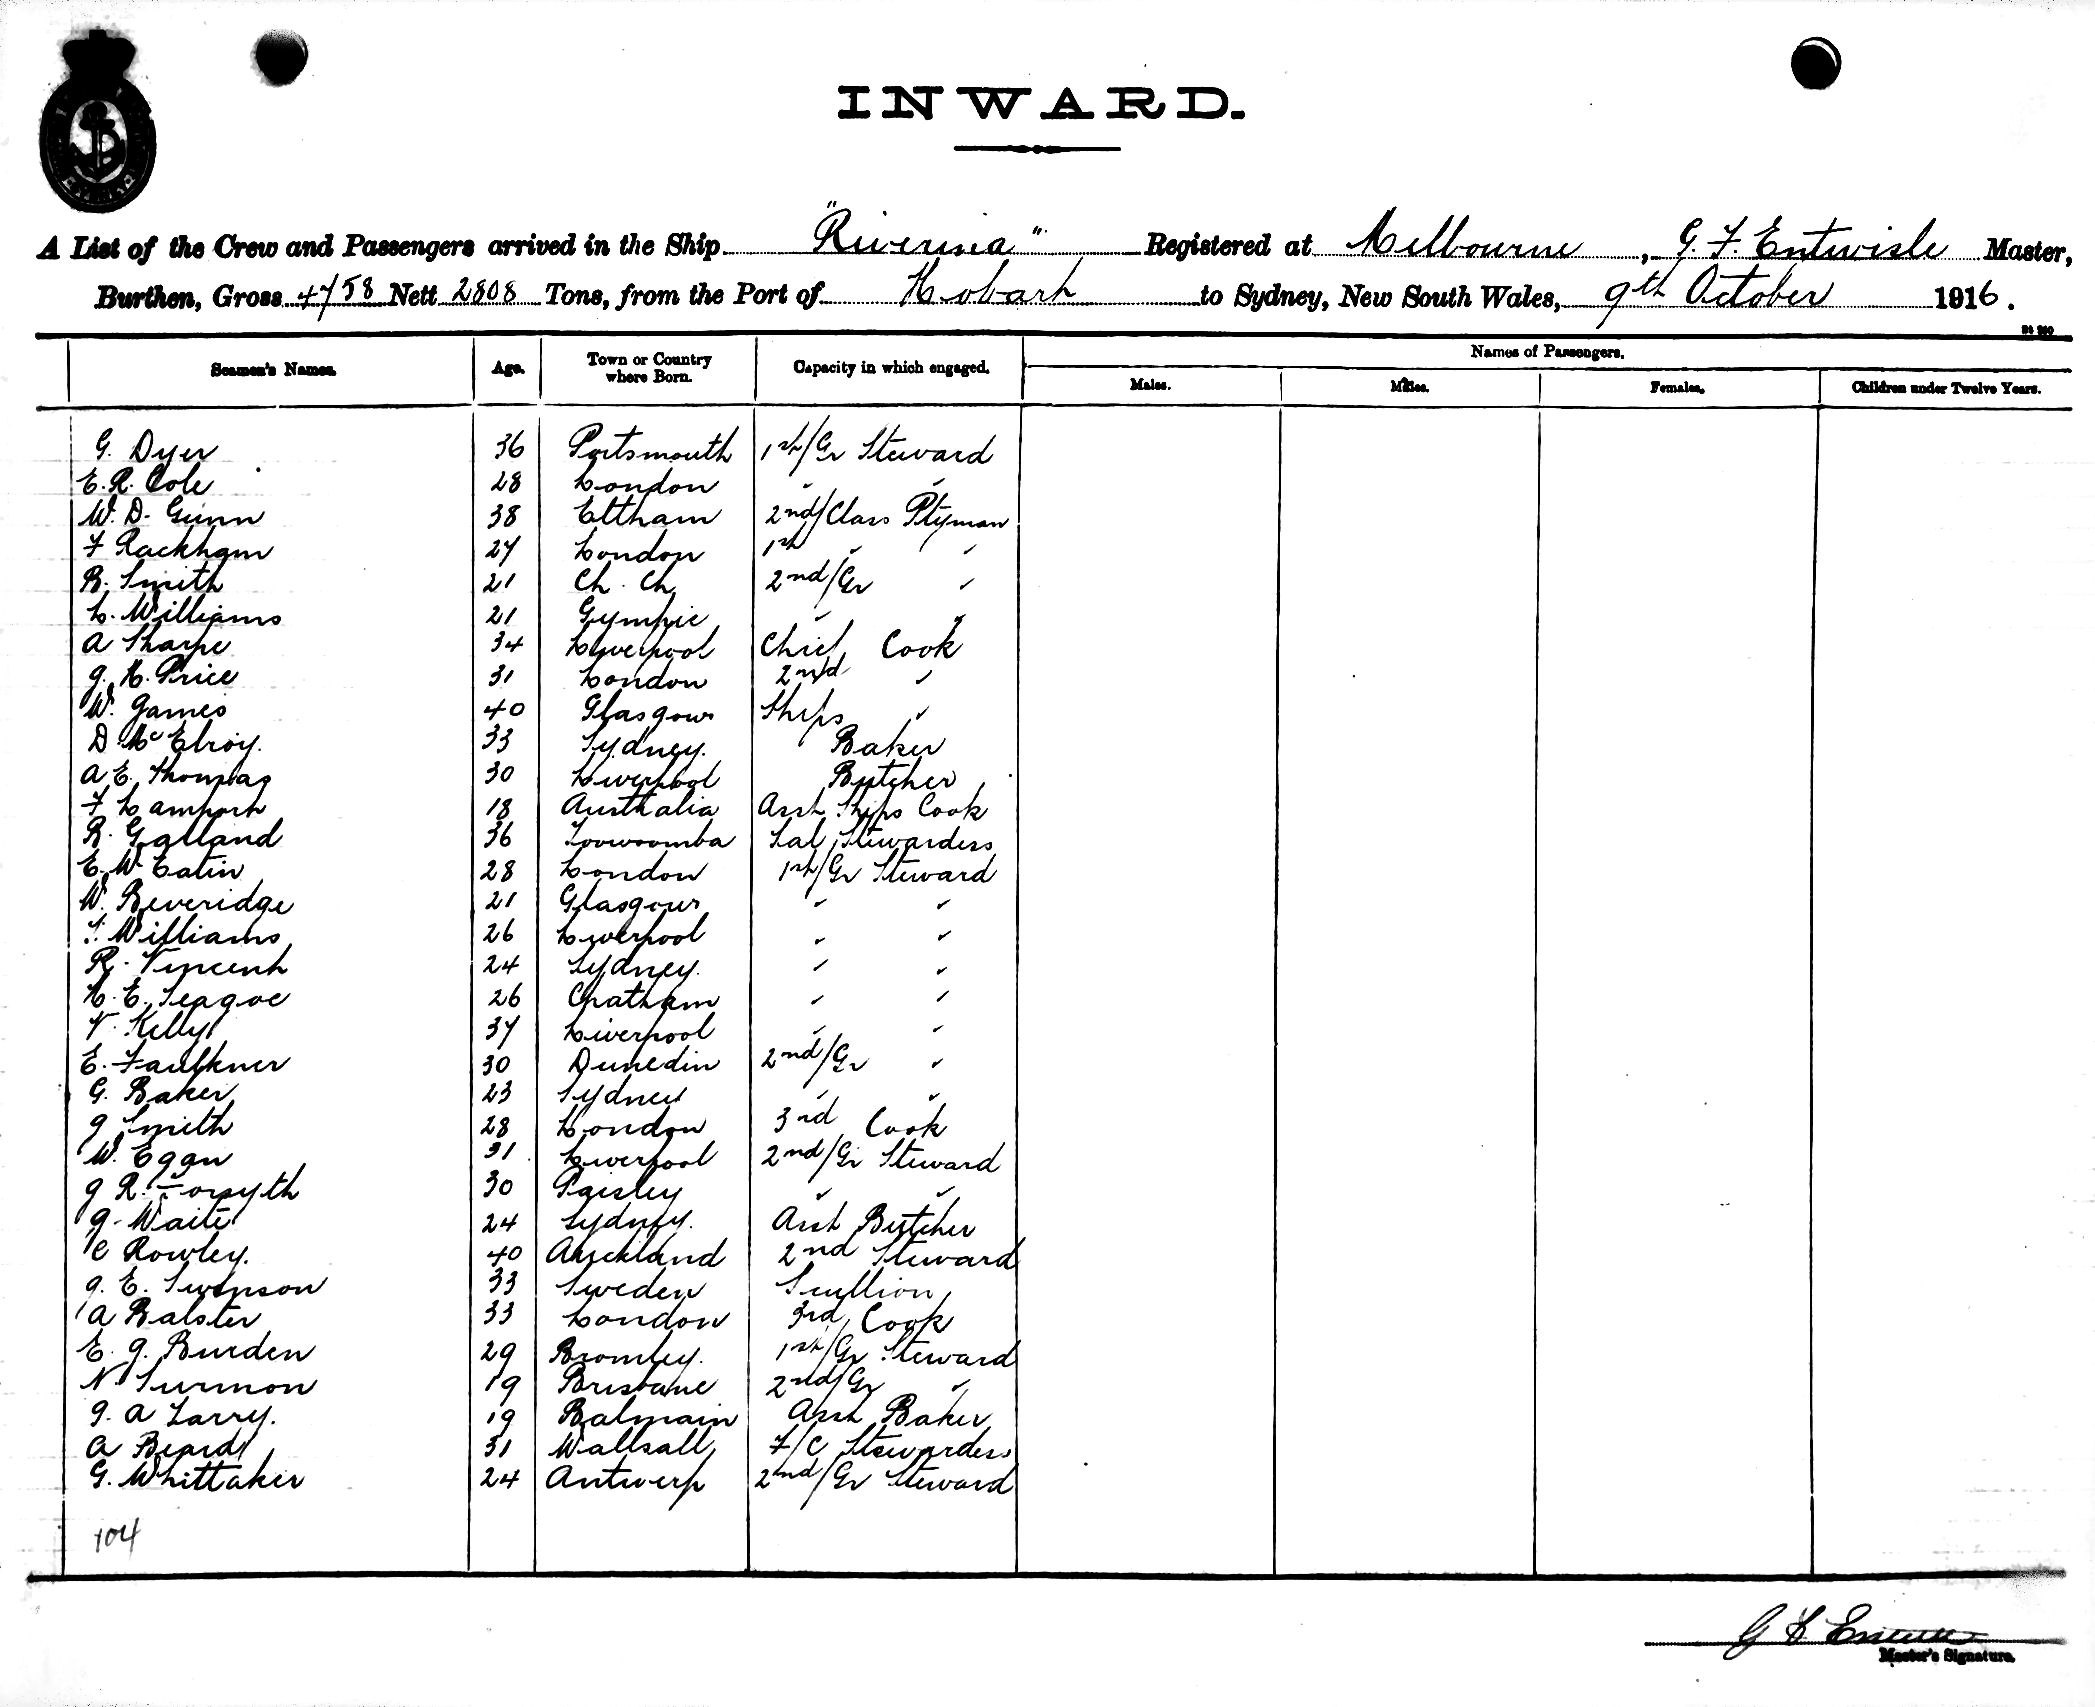 INWARD.
A List of the Crew and Passengers arrived in the Ship "Riverina" Registered at Melbourne, G. F. Entwisle Master,
Burthen, Gross 4758 Nett 2808 Tons, from the Port of Hobart to Sydney, New South Wales, 9th October 1916.
Seamen's Names. Age. Town or Country where Born. Capacity in which engaged. Names of Passengers.
Males. Males. Females. Children under Twelve Years.
G. Dyer 36 Portsmouth 1st/Gr Steward
E. R. Cole 28 London " "
W. D. Gunn 38 Eltham 2nd/Class Ptyman
F Rackham 27 London 1st " "
B. Smith 21 Ch. Ch. 2nd/Gr "
L. Williams 21 Gympie " "
A Sharpe 34 Liverpool Chief Cook
J. H. Price 31 London 2nd "
W. James 40 Glasgow Ships "
D McElroy. 33 Sydney. Baker
A E. Thomas 30 Liverpool Butcher
F Lamport 18 Australia Asst Ships Cook
B. Galland 36 Toowoomba Sal Stewardess
E. W Eatin 28 London 1st/Gr Steward
W. Beveridge 21 Glasgow " "
T. Williams 26 Liverpool " "
R. Vincent 24 Sydney. " "
H. E. Seagoe 26 Chatham " "
V. Kelly 37 Liverpool " "
E. Faulkner 30 Dunedin 2nd/Gr "
G. Baker 23 Sydney " "
J Smith 28 London 3rd Cook
W. Egan 31 Liverpool 2nd/Gr Steward
J R. Forsyth 30 Paisley " "
J. Waite 24 Sydney. Asst Butcher
C Rowley. 40 Auckland 2nd Steward
J. E. Swenson 33 Sweden Scullion
A Balster 33 London 3rd Cook
E. J. Burden 29 Bromley. 1st/Gr Steward
N Surmon 19 Brisbane 2nd/Gr "
J. A Larry. 19 Balmain Asst Baker
A Beard 31 Wallsall F/C Stewardess
G. Whittaker 24 Antwerp 2nd/Gr Steward
104
Master's Signature.